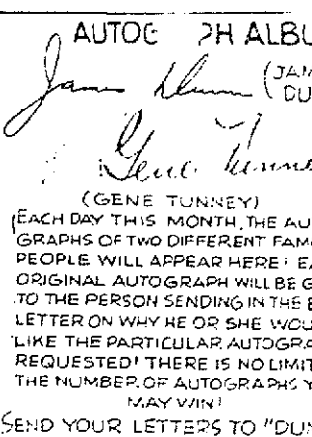 AUTOG PH ALBU
James Dunn (JAM
DU
Gene Tunne
(GENE TUNNEY)
EACH DAY THIS MONTH, THE AU
GRAPHS OF TWO DIFFERENT FAM
PEOPLE WILL APPEAR HERE! EA
ORIGINAL AUTOGRAPH WILL BE G
TO THE PERSON SENDING IN THE B
LETTER ON WHY HE OR SHE WOU
LIKE THE PARTICULAR AUTOGRA
REQUESTED! THERE IS NO LIMIT
THE NUMBER OF AUTOGRAPHS Y
MAY WIN!
SEND YOUR LETTERS TO "DUN